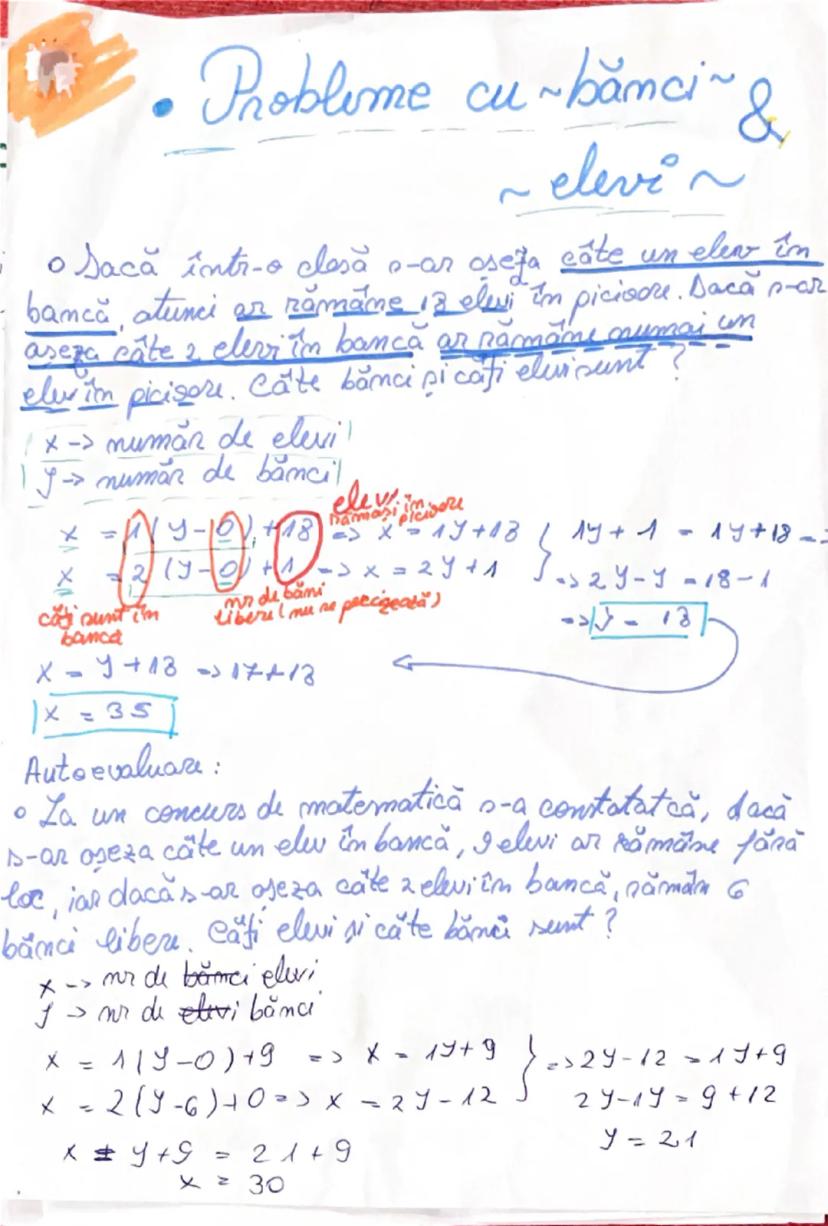 • Probleme cu ~ bănci ~ &
~ elevi ~
o Dacă într-o clasă s-ar așeza câte un elev în
bancă, atunci ar rămâne 18 elevi în picioare. Dacă s-ar
așeza câte 2 elevi în bancă ar rămâne numai un
elev în picioare. Câte bănci și câți elevi sunt?
x -> număr de elevi
y -> număr de bănci
elevi rămași în picioare
x = 1(y-0)+18 => x = 1y+18 } 1y+1 = 1y+18 =>
x = 2(y-0)+1 => x = 2y+1 => 2y-y = 18-1
câți sunt în bancă
nr de bănci libere (nu se precizează)
=> y = 18
x = y+18 => 17+18
x = 35
Autoevaluare:
o La un concurs de matematică s-a constatat că, dacă
s-ar așeza câte un elev în bancă, 9 elevi ar rămâne fără
loc, iar dacă s-ar așeza câte 2 elevi în bancă, rămân 6
bănci libere. Câți elevi și câte bănci sunt?
x -> nr de bănci elevi
y -> nr de elevi bănci
x = 1(y-0)+9 => x = 1y+9 } => 2y-12 = 1y+9
x = 2(y-6)+0 => x = 2y-12 2y-1y = 9+12
x = y+9 = 21+9 y = 21
x = 30